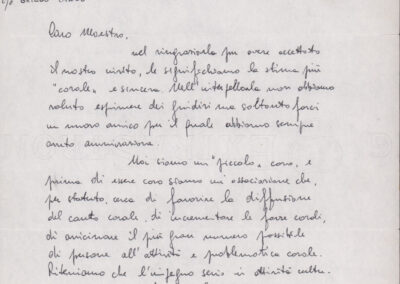 Caro Maestro,
nel ringraziarla per avere accettato
il nostro invito, le significhiamo la stima più
"corale" e sincera. Nell'interpellarla non abbiamo
voluto esprimere dei giudizi ma soltanto farci
un nuovo amico per il quale abbiamo sempre
avuto ammirazione.
Noi siamo un "piccolo" coro, e
prima di essere coro siamo un'associazione che,
per statuto, cerca di favorire la diffusione
del canto corale, di incrementare le forze corali,
di avvicinare il più gran numero possibile
di persone all'attività e problematica corale.
Riteniamo che l'impegno serio in attività cultu-